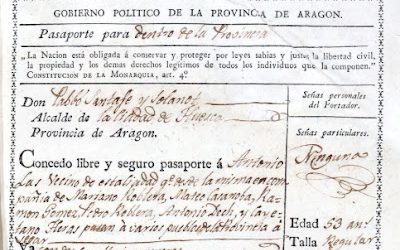 GOBIERNO POLITICO DE LA PROVINCIA DE ARAGON.
Pasaporte para dentro de la Provincia
„La Nacion está obligada á conservar y proteger por leyes sabias y justas la libertad civil,
la propiedad y los demas derechos legitimos de todos los individuos que la componen."
CONSTITUCION DE LA MONARQUIA, art. 4º
Don Pablo Santafe y
Alcalde de la Ciudad de Huesca
Provincia de Aragon.
Señas personales
del Portador.
Señas particulares.
Ninguna
Concedo libre y seguro pasaporte á Antonio
Las Vecino de esta Ciudad qe. desde la misma en com
pañia de Mariano Mateo Ra
mon Gomez Pedro Antonio y Caye
tano pasan á varios pueblos de la Provincia á
segar
Edad 53 an.s
Talla Regular